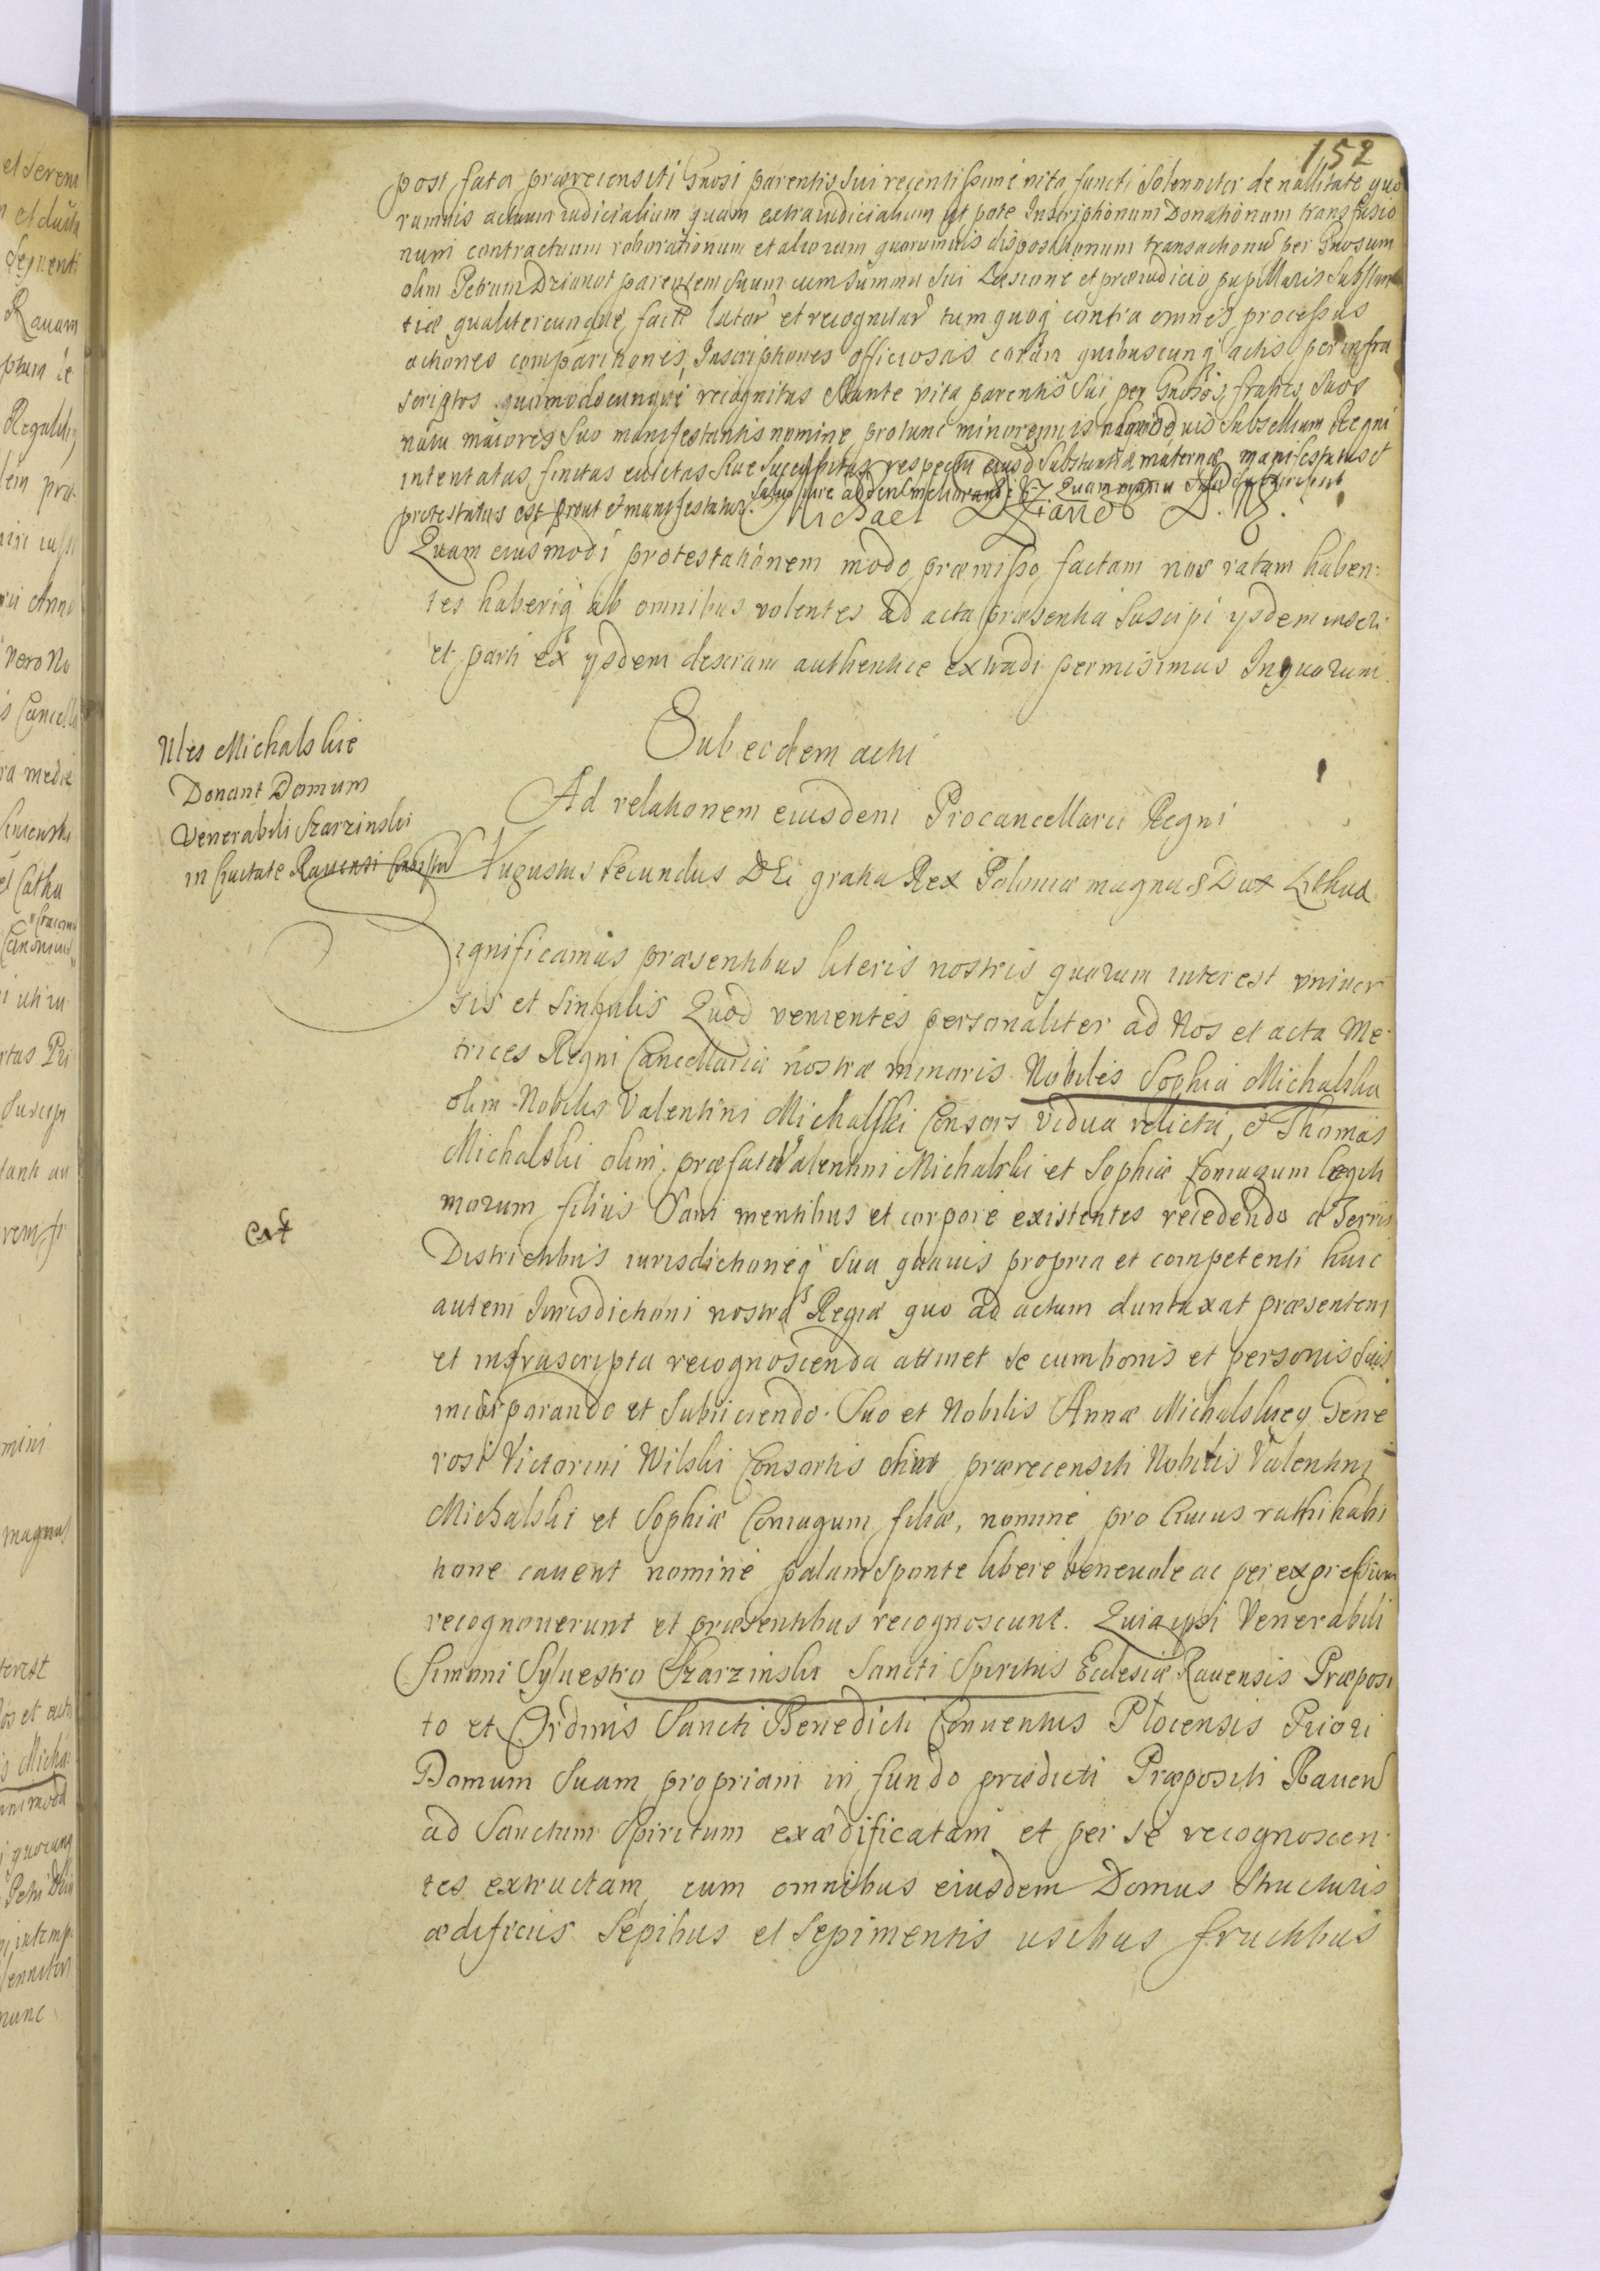 152
post fata prærecensiti Gnosi parentis sui recentissime vita functi solenniter de nullitate quo
rumvis actuum iudicialium quam extraiudicialium ut pote Inscriptionum Donationum transfusio
num contractuum roborationum et aliorum quorumvis dispositionum transactionū per Gnosum
olim Petrum Dzianot parentem suum cum summa sui Læsione et præiudicio pupillaris substan
tiæ qualitercunque factar latar et recognitar tum quoq contra omnes processus
actiones comparitiones, Inscriptiones officiosas coram quibuscunq actis per infra
scriptos quomodocunque recognitas stante vita parentis sui per Gnosos fratres suos
natu maiores suo manifestantis nomine protunc minorennis
subsellium Regni
intentatas finitas evictas sive respectu eiusd substantiæ maternæ manifestatus et
protestatus est prout et manifestatur. salvo iure
Michael Dzianot
Quam eiusmodi protestationem modo præmisso factam nos ratam haben-
tes haberiq ab omnibus volentes ad acta præsentia suscipi ysdem inseri
et parti ex ysdem descriam authentice extradi permisimus In quorum.
Nles Michalskie
Donant Domum
Venerabili Szarzinski
in Civitate Ravensi
Sub eodem actu
Ad relationem eiusdem Procancellarii Regni
Augustus secundus DEi gratia Rex Poloniæ magnus Dux Lithuæ
Significamus præsentibus literis nostris quorum interest univer
sis et singulis Quod venientes personaliter ad Nos et acta Me-
trices Regni Cancellariæ nostræ minoris Nobiles Sophia Michalska
olim Nobilis Valentini Michalski Consors Vidua relicta, et Thomas
Michalski olim præfati Valentini Michalski et Sophiæ Coniugum legiti
morum filius Sani mentibus et corpore existentes recedendo a Terris
Cxt
Districtibus iurisdictioneq sua quavis propria et competenti huic
autem Jurisdictioni nostræ Regiæ quo ad actum duntaxat præsentem
et infrascripta recognoscenda attinet se cum bonis et personis suis
incorporando et subiiciendo. Suo et Nobilis Annæ Michalskieÿ Gene
rosi Victorini Wilski Consortis olim prærecensiti Nobilis Valentini
Michalski et Sophiæ Coniugum filiæ, nomine pro Cuius rathihabi
tione cavent nomine palam sponte libere benevole ac per expressum
recognoverunt et præsentibus recognoscunt. Quia ipsi Venerabili
Simoni Sylvestro Szarzinski Sancti Spiritus Ecclesiæ Ravensis Præposi
to et Ordinis Sancti Benedicti Conventus Plocensis Priori
Domum suam propriam in fundo prædicti Præpositi Raven
ad Sanctum Spiritum exædificatam et per se recognoscen-
tes extructam, cum omnibus eiusdem Domus structuris
ædificiis sepibus et sepimentis usibus fructibus